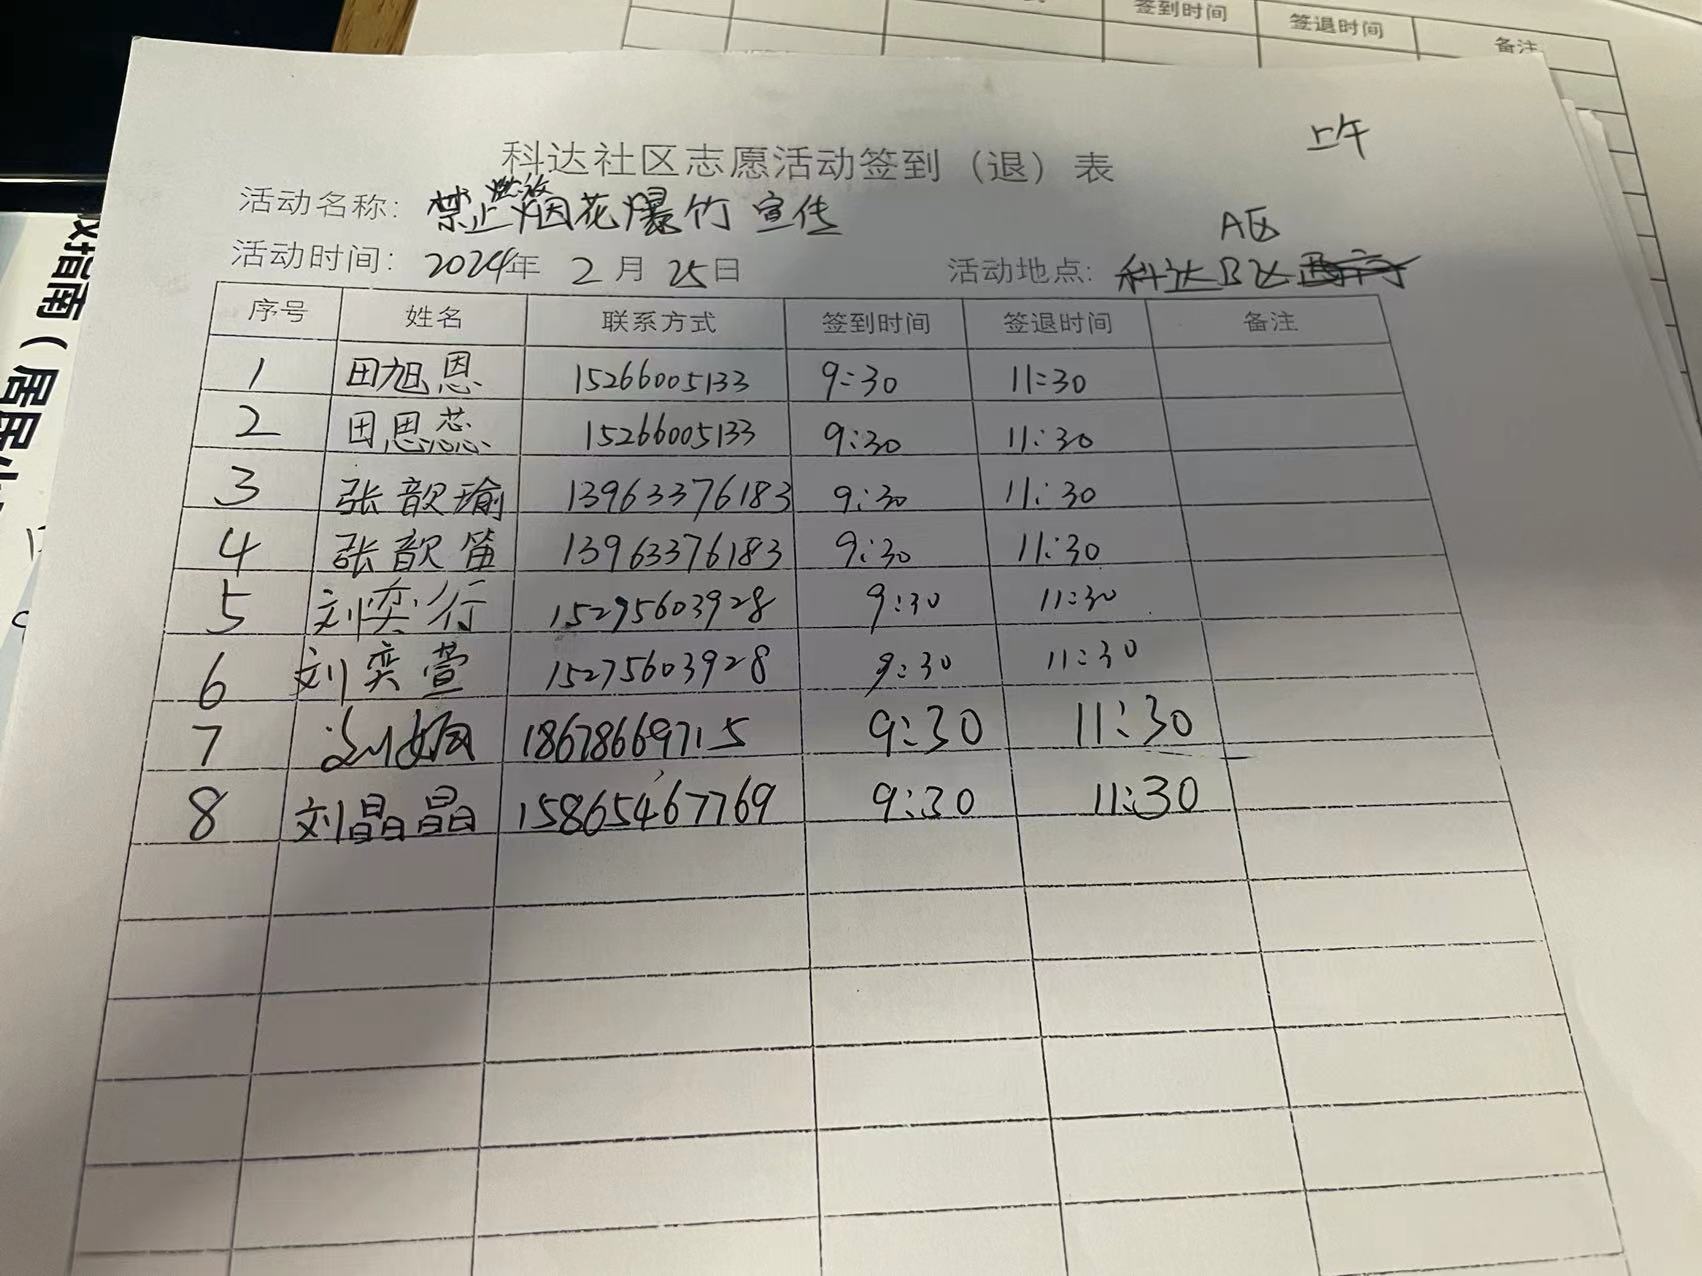 签到时间 签退时间 备注
上午
科达社区志愿活动签到（退）表
燃放
活动名称：禁止烟花爆竹宣传
A区
活动时间：2024年 2月 25日 活动地点：科达B区
序号 姓名 联系方式 签到时间 签退时间 备注
1 田旭恩 15266005133 9:30 11:30
2 田思蕊 15266005133 9:30 11:30
3 张歆瑜 13963376183 9:30 11:30
4 张歆笛 13963376183 9:30 11:30
5 刘奕行 15275603928 9:30 11:30
6 刘奕萱 15275603928 9:30 11:30
7 刘娴 18678669715 9:30 11:30
8 刘晶晶 15865467769 9:30 11:30
指南（居民